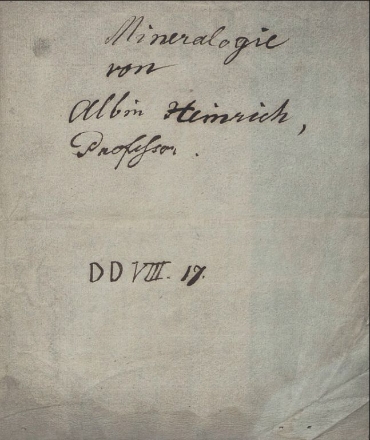 Mineralogie
von
Albin Heinrich,
Professor.
DD VIII. 17.